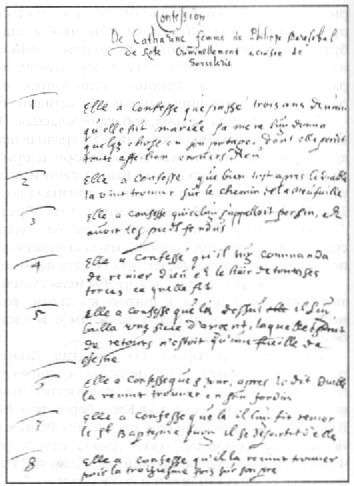 Confession
De Catharine femme de Philippe
de Criminellement accusee de
Sorcelerie
1 Elle a Confesse que passe trois ans
qu'elle fut mariee sa mere luy donna
quelq chose en son potage, dont elle perdit
toute affection envers Dieu
2 Elle a Confesse que bien tost apres le diable
la vint trouver sur le chemin de
3 Elle a Confesse qu'icelluy s'appelloit et
avoit les pieds fendus
4 Elle a Confesse qu'il luy commanda
de renier dieu et le hair de toutes ses
forces, ce quelle fit
5 Elle a Confesse que la dessus il luy
bailla une piece d'argent, laquelle
de retour n'estoit qu'une fueille de
chesne
6 Elle a Confesse que apres le dit Diable
la revint trouver en son jardin
7 Elle a Confesse que la il luy fit renier
le St Baptesme puis il se departit d'elle
8 Elle a Confesse qu'il la revint trouver
pour la troiziesme fois sur son pre